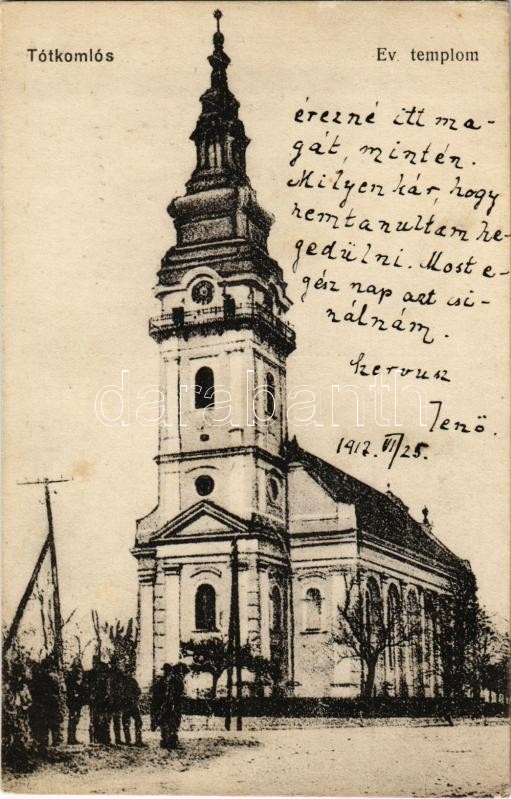 Tótkomlós
Ev. templom
érezné itt ma-
gát, mintén.
Milyen kár, hogy
nem tanultam he-
gedülni. Most e-
gész nap azt csi-
nálnám.
Szervusz
Jenő.
1917. VI/25.
darabanth